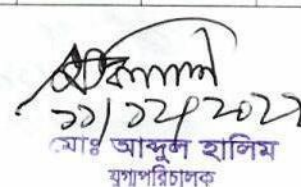 ১১/১২/২০২২
মোঃ আব্দুল হালিম
যুগ্মপরিচালক